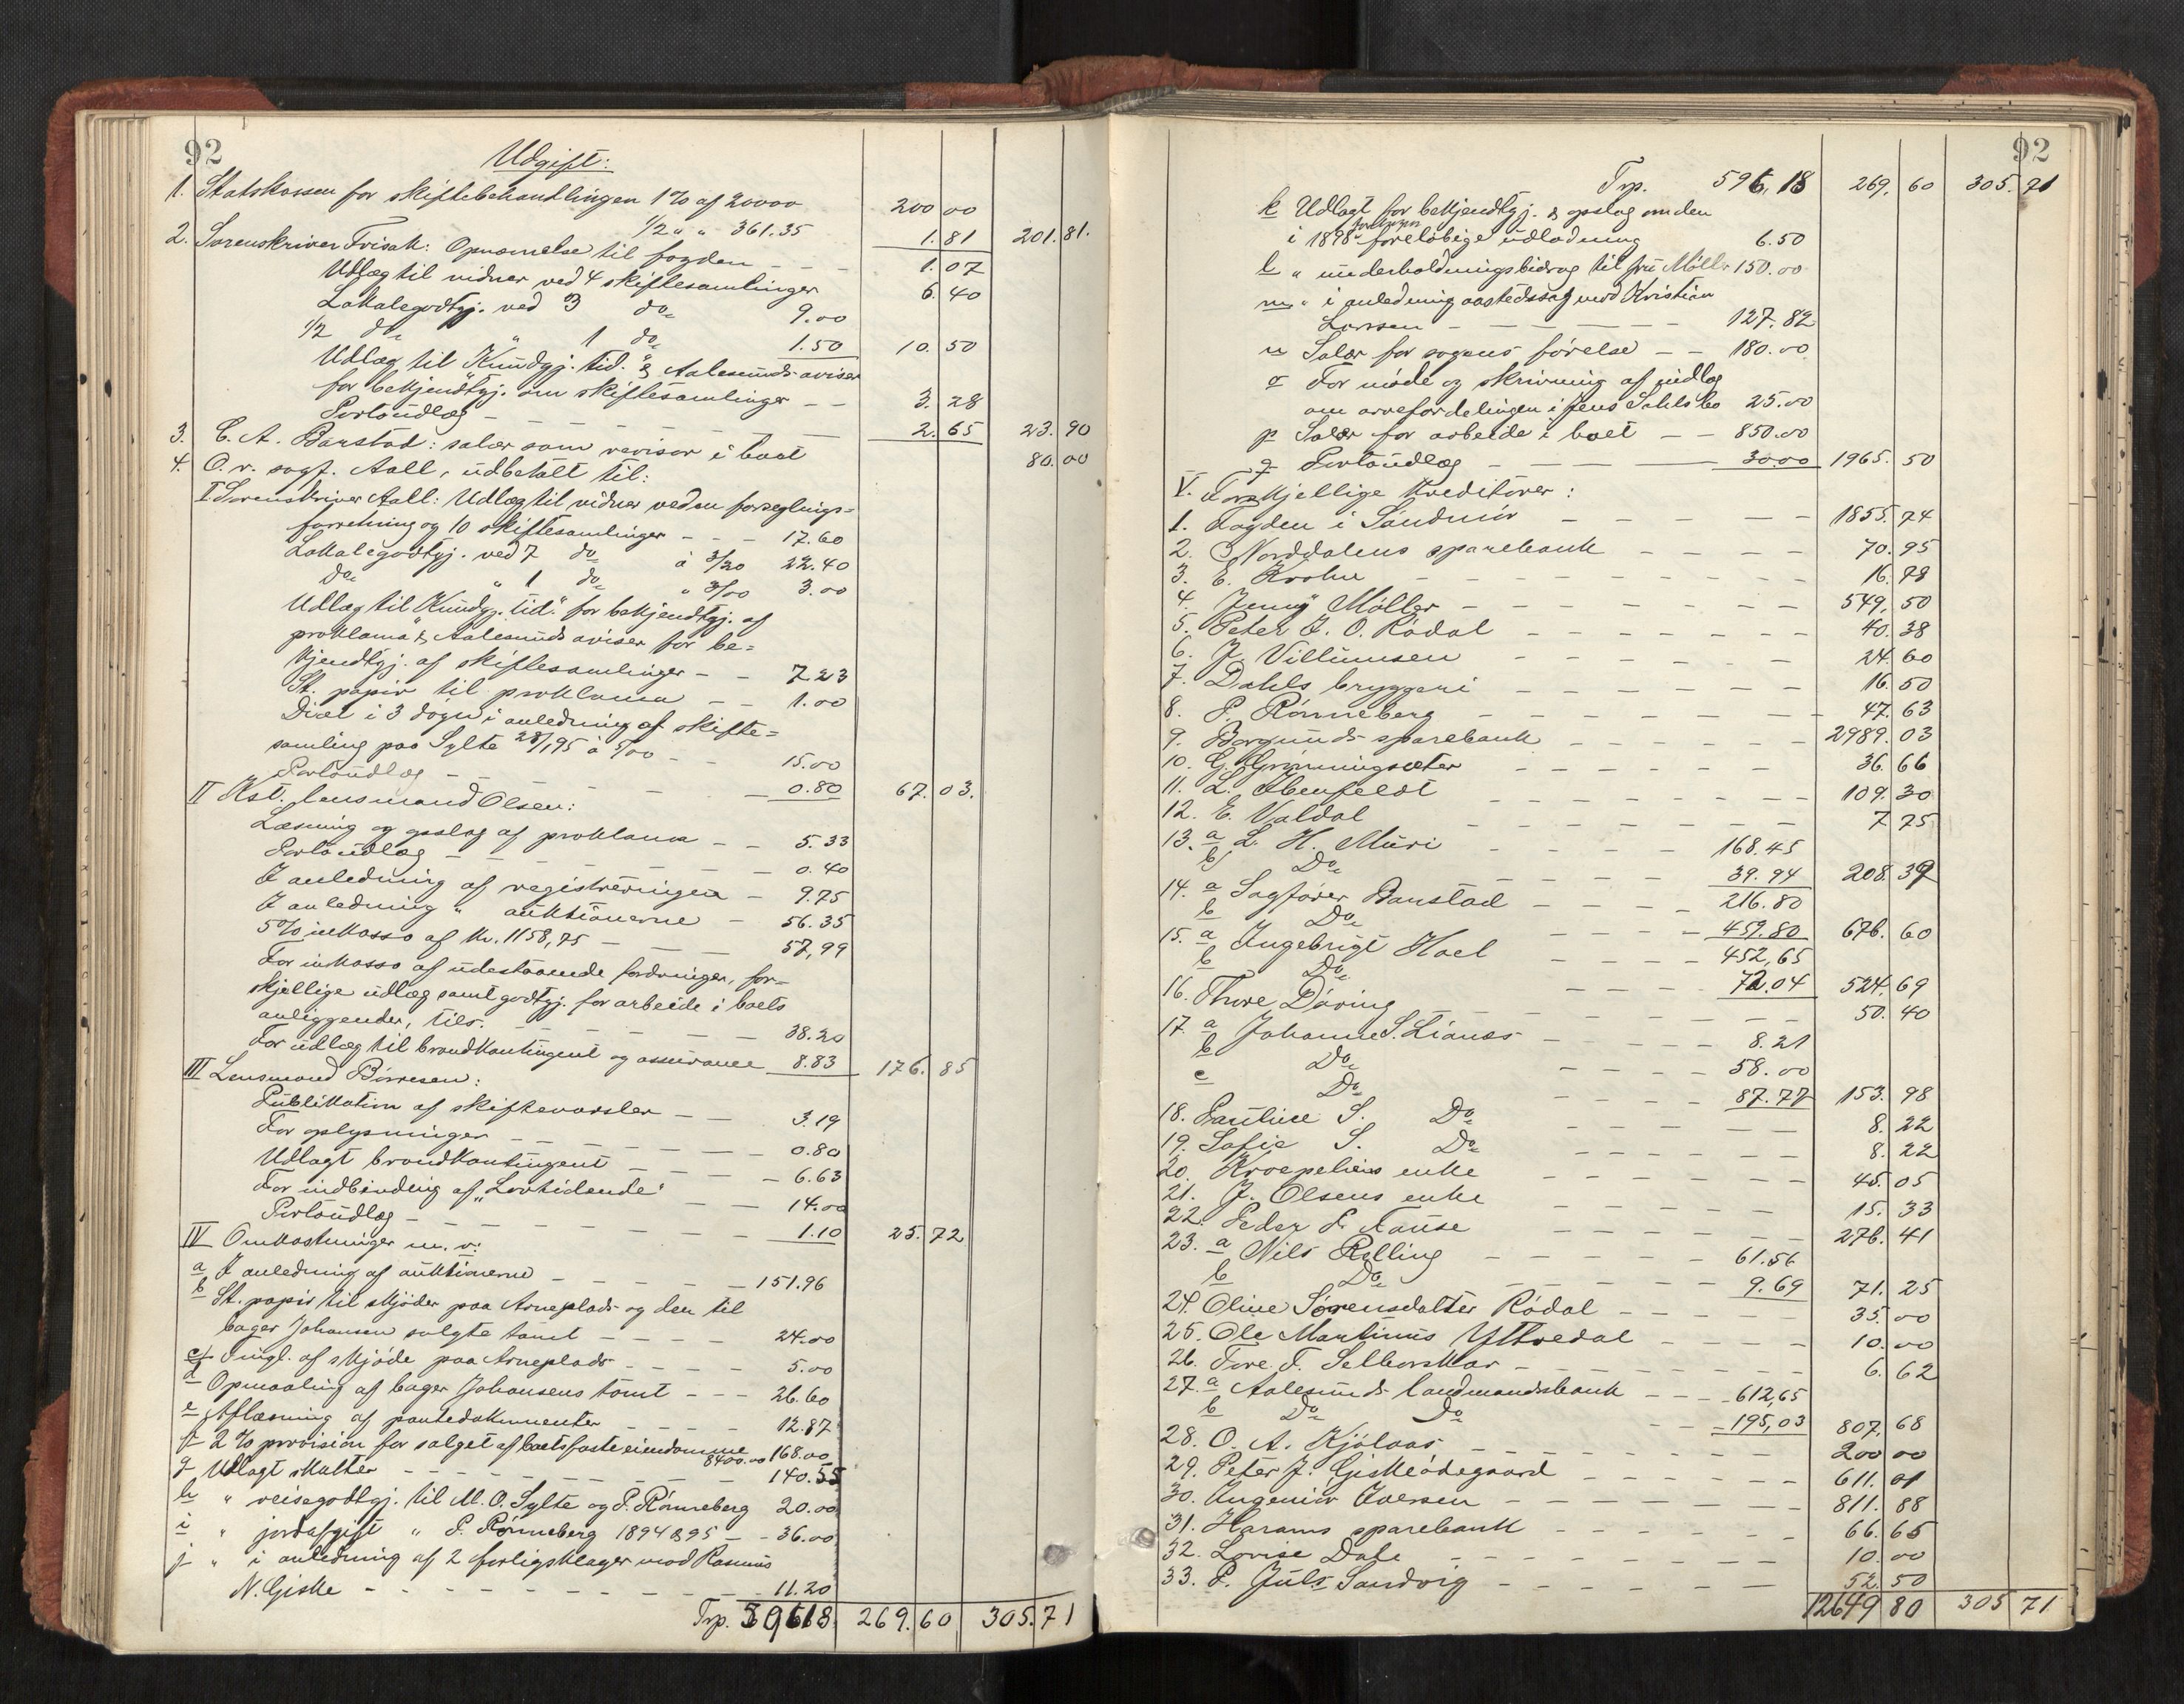 92
Udgift:
1. Statskassen for skiftebehandlingen 1% af 20000 200 00
1/2 " " 361.35 1. 81 201. 81.
2. Sorenskriver Frisak: Opnævnelse til fogden - - - 1. 07
Udlæg til vidner ved 4 skiftesamlinger 6. 40
Lokalegodtgj. ved 3 do 9.00
1/2 do " 1 do 1.50 10. 50
Udlæg til Kundgj. tid. & Aalesunds aviser
for bekjendtgj. om skiftesamlinger - - 3. 28
Portoudlæg - - - - - 2. 65 23. 90
3. C. A. Banstad: salær som revisor i boet 80. 00
4. O. r. sagf. Aall, udbetalt til:
I Sorenskriver Aall: Udlæg til vidner ved en forseglings=
forretning og 10 skiftesamlinger - - - 17.60
Lokalegodtgj. ved 7 do à 3/20 22.40
Do " 1 do " 3/00 3.00
Udlæg til "Kundgj. tid." for bekjendtgj. af
proklama & Aalesunds aviser for be=
kjendtgj. af skiftesamlinger - - 7.23
St. papir til proklama - - 1.00
Diæt i 3 døgn i anledning af skifte=
samling paa Sylte 28/1 95 à 5/00 - - 15.00
Portoudlæg - - - - 0.80 67. 03.
II Kst. lensmand Olsen:
Læsning og opslag af proklama - - 5.33
Portoudlæg - - - - 0.40
I anledning af registreringen - 9.75
I anledning " auktionerne - 56.35
5% inkasso af kr. 1158,75 - - 57,99
For inkasso af udestaaende fordringer, for-
skjellige udlæg samt godtgj. for arbeide i boets
anliggender, tils. - - - - 38.20
For udlæg til brandkontingent og assurance 8.83 176. 85
III Lensmand Börresen:
Publikation af skiftevarsler - - 3.19
For oplysninger - - - - 0.80
Udlagt brandkontingent - - - 6.63
For indbinding af "Lovtidende" - - 14.00
Portoudlæg - - - - 1.10 25. 72
IV Omkostninger m. v:
a I anledning af auktionerne - - - - 151.96
b St. papir til skjöder paa Arneplads og den til
bager Johansen solgte tomt - - - - 24.00
c Tingl. af skjöde paa Arneplads - - - - 5.00
d Opmaaling af bager Johansens tomt - - - 26.60
e Aflæsning af pantedokumenter - - - - 12.87
f 2% provision for salget af boets faste eiendomme 8400.00 168.00
g Udlagt skatter - - - - 140.55
h " reisegodtgj. til M. O. Sylte og P. Rönneberg 20.00
i " jordafgift " P. Rönneberg 1894 & 95 - - 36.00
j " i anledning af 2 forligsklager mod Rasmus
N. Giske - - - - - - 11.20
Trp. 596 18. 269. 60 305. 71
92
Trp. 596, 18 269, 60 305. 71
k Udlagt for bekjendtgj. & opslag om den
i 1898 foreløbige udlodning 6.50
l " underholdningsbidrag til fru Möller 150.00
m " i anledning aastedssag mod Kristian
Larsen - - - - - 127.82
n Salær for sagens förelse - - 180.00
o For möde og skrivning af indlæg
om arvefordelingen i Jens Dahls bo 25.00
p Salær for arbeide i boet - - 850.00
q Portoudlæg - - - 30.00 1965. 50
V. Forskjellige kreditorer:
1. Fogden i Söndmör - - - - - 1855. 74
2. Norddalens sparebank - - - - 70. 95
3. E. Krohn - - - - - - 16. 78
4. Jenny Möller - - - - - - 549, 50
5. Peter J. O. Rödal - - - - - - 40. 38
6. J. Villumsen - - - - - - 24. 60
7. Dahls bryggeri - - - - - - 16. 50
8. P. Rönneberg - - - - - - 47. 63
9. Borgunds sparebank - - - - - 2989. 03
10. G. Grönningsæter - - - - - 36. 66
11. L. Ibenfeldt - - - - - - 109. 30
12. E. Valdal - - - - - - 7 75
13. a L. H. Muri - - - - 168.45
b Do - - - - 39.94 208. 39
14. a Sagförer Banstad - - - - 216.80
b Do - - - - 459.80 676. 60
15. a Ingebrigt Hoel - - - - 452,65
b Do - - - - 72.04 524. 69
16. Thore Döving - - - - - - 50. 40
17. a Johanne S. Lianes - - - - 8.21
b Do - - - - 58.00
c Do - - - - 87.77 153. 98
18. Pauline S. Do - - - - - 8. 22
19. Sofie S. Do - - - - - 8. 22
20. Kroepeliens enke - - - - - 45. 05
21. J. Olsens enke - - - - - 15. 33
22. Peder P. Fause - - - - - 276. 41
23. a Nils Relling - - - - 61.56
b Do - - - - 9.69 71. 25
24. Oline Sörensdatter Rödal - - - 35. 00
25. Ole Martinus Ytredal - - - - 10. 00
26. Tore T. Selboskar - - - - - 6. 62
27. a Aalesunds landmandsbank - - - 612,65
b Do Do - - 195,03 807, 68
28. O. A. Kjölaas - - - - - - 200 00
29. Peter J. Giskeödegaard - - - - - 611. 01
30. Ingeniör Iversen - - - - - - 811. 88
31. Harams sparebank - - - - - 66. 65
32. Lovise Dahl - - - - - - 10. 00
33. P. Juls Sandvig - - - - - - 52. 50
12649 80 305 71